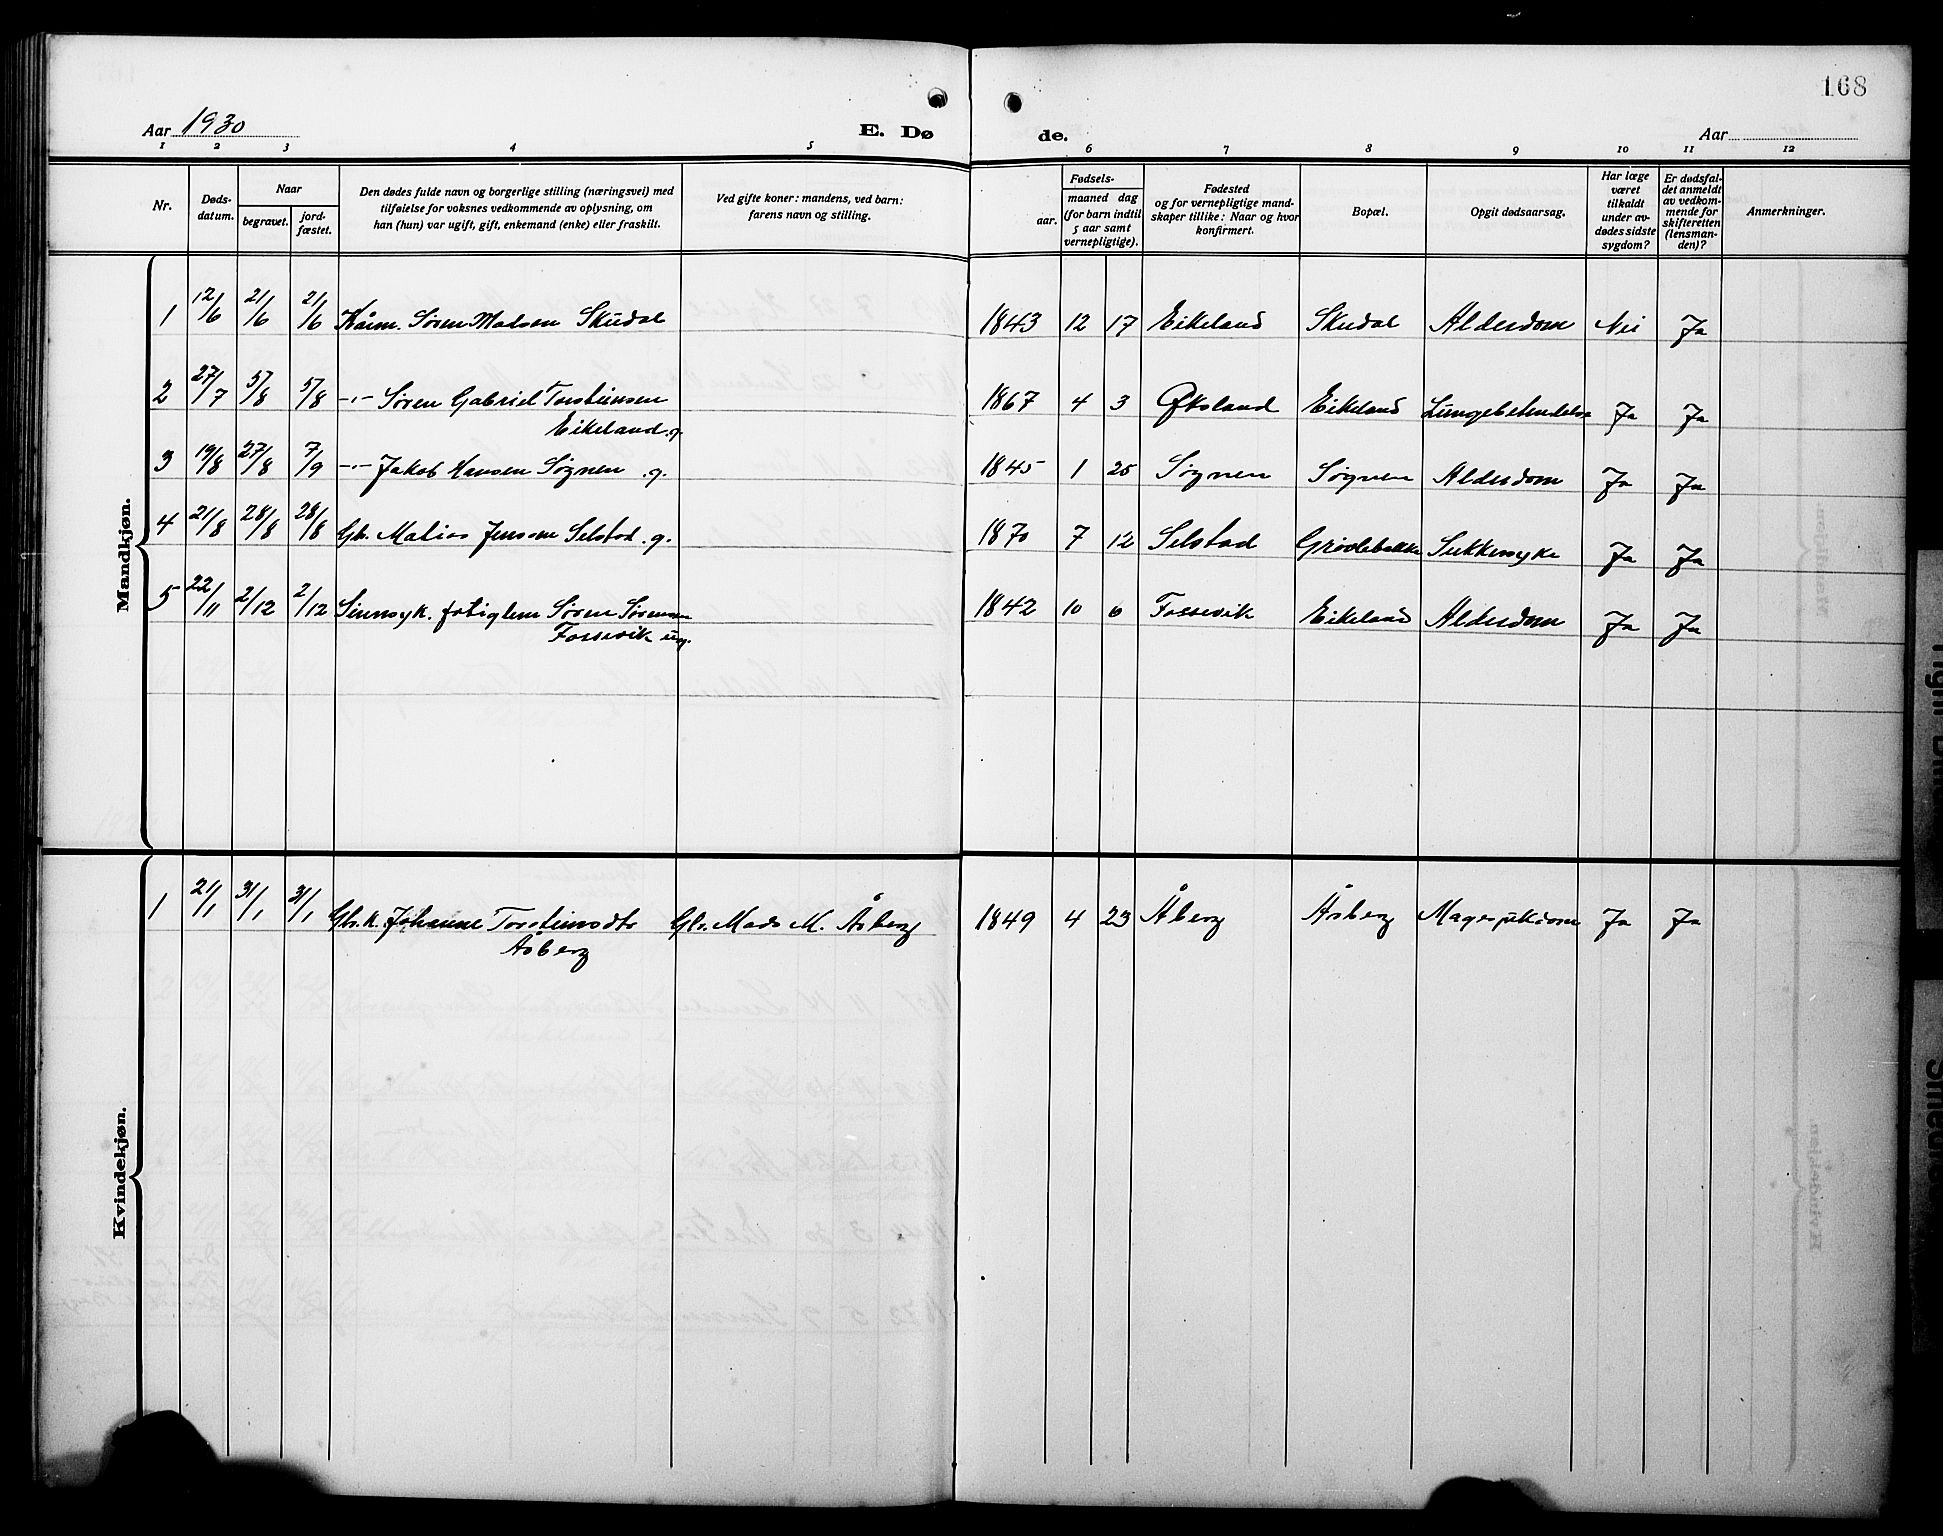 168
Aar 1930
E. Dø de.
Aar
1 2 3 4 5 6 7 8 9 10 11 12
Nr.
Døds-
datum.
Naar
begravet.
jord-
fæstet.
Den dødes fulde navn og borgerlige stilling (næringsvei) med
tilføielse for voksnes vedkommende av oplysning, om
han (hun) var ugift, gift, enkemand (enke) eller fraskilt.
Ved gifte koner: mandens, ved barn:
farens navn og stilling.
Fødsels-
aar.
maaned dag
(for barn indtil
5 aar samt
vernepligtige).
Fødested
og for vernepligtige mand-
skaper tillike: Naar og hvor
konfirmert.
Bopæl.
Opgit dødsaarsag.
Har læge
været
tilkaldt
under av-
dødes sidste
sygdom?
Er dødsfal-
det anmeldt
av vedkom-
mende for
skifteretten
(lensman-
den)?
Anmerkninger.
Mandkjøn.
1 12/6 21/6 21/6 Kårm. Søren Madsen Skudal 1843 12 17 Eikeland Skudal Alderdom Nei Ja
2 27/7 5/8 5/8 -"- Søren Gabriel Torsteinsen 1867 4 3 Øksland Eikeland Lungebetendelse Ja Ja
Eikeland .g.
3 19/8 27/8 7/9 -"- Jakob Hansen Søgnen .g. 1845 1 25 Søgnen Søgnen Alderdom Ja Ja
4 21/8 28/8 28/8 Gb. Matias Jensen Selstad .g. 1870 7 12 Selstad Grødebakke Sukkersyke Ja Ja
5 22/11 2/12 2/12 Sinnsyk. fatiglem Søren Sørensen 1842 10 6 Fossevik Eikeland Alderdom Ja Ja
Fossevik ug.
Kvindekjøn.
1 21/1 31/1 31/1 Gbr.k. Johanne Torsteinsdtr Gbr. Mads M. Åsberg 1849 4 23 Åberg Åsberg Magesykdom Ja Ja
Åsberg